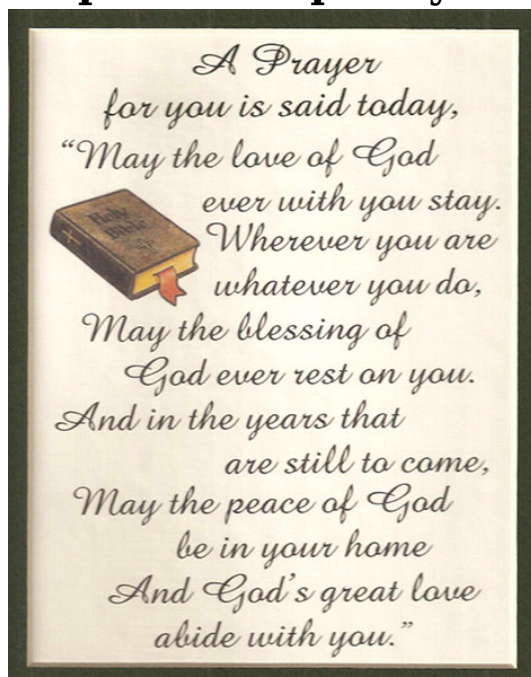 A Prayer
for you is said today,
“May the love of God
ever with you stay.
Holy
Bible
Wherever you are
whatever you do,
May the blessing of
God ever rest on you.
And in the years that
are still to come,
May the peace of God
be in your home
And God's great love
abide with you.”